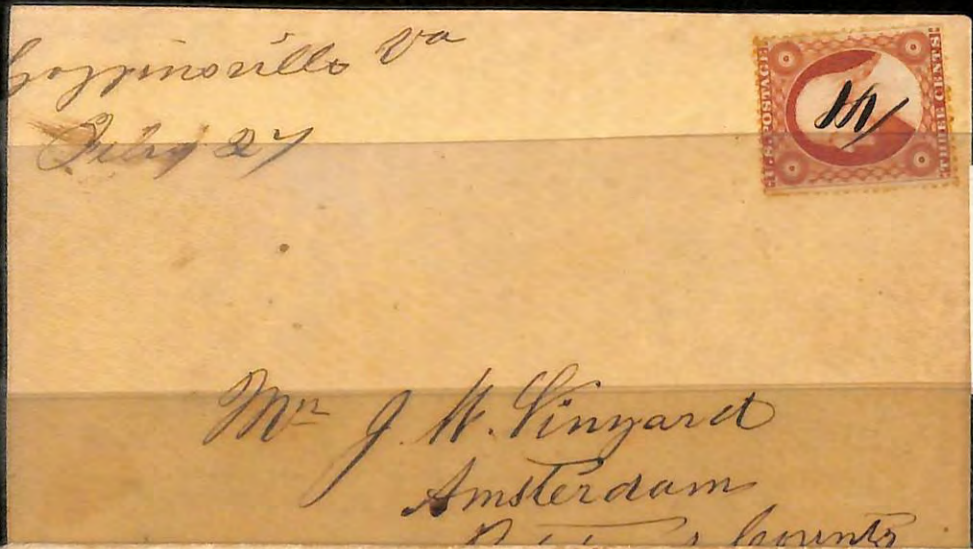 Gogginsville Va
Feby 27
U.S. POSTAGE
THREE CENTS
Mr J. W. Vinyard
Amsterdam
County